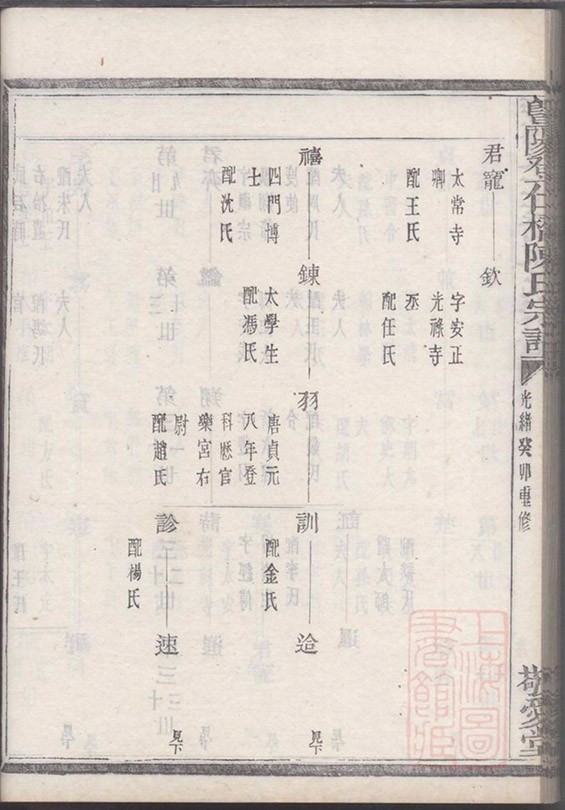 陳氏宗譜
光緒癸卯重修
敬愛堂
君寵
太常寺
卿
配王氏
欽
字安正
光祿寺
丞
配任氏
禧
四門博
士
配沈氏
鍊
太學生
配馮氏
羽
唐貞元
八年登
科懸官
樂宮右
尉
配趙氏
訓
配金氏
迨
見下
診
配楊氏
速
見下
上海圖
書館藏